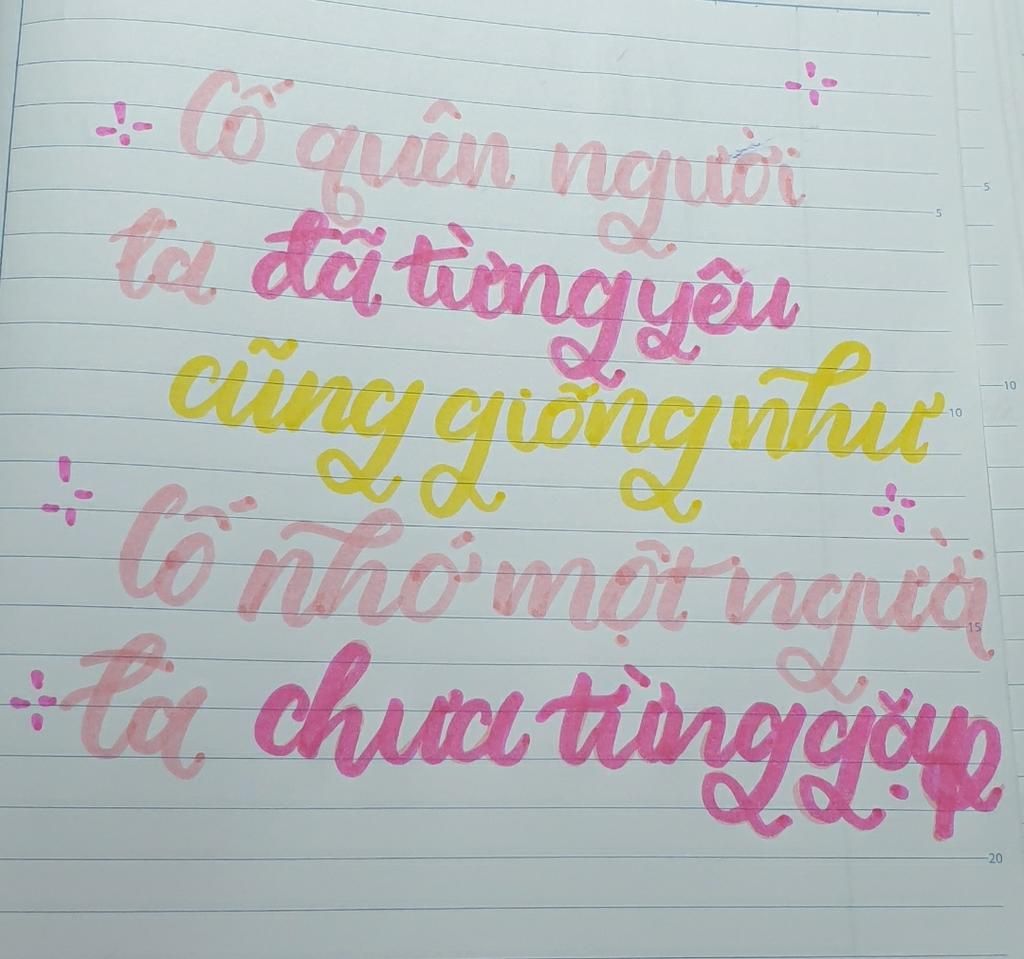 Cố quên người
ta đã từng yêu
cũng giống như
Cố nhớ một người
ta chưa từng gặp
5
10
15
20
5
10